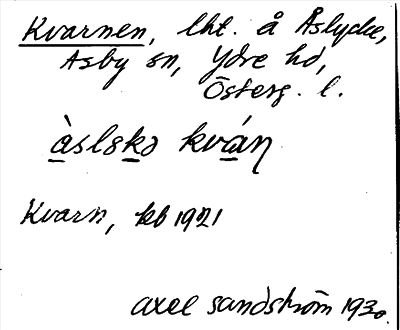 Kvarnen, lht. å Åslycke,
Asby sn, Ydre hd,
Österg. l.
àslskə kván
Kvarn, kb 1921
Axel Sandström 1930.